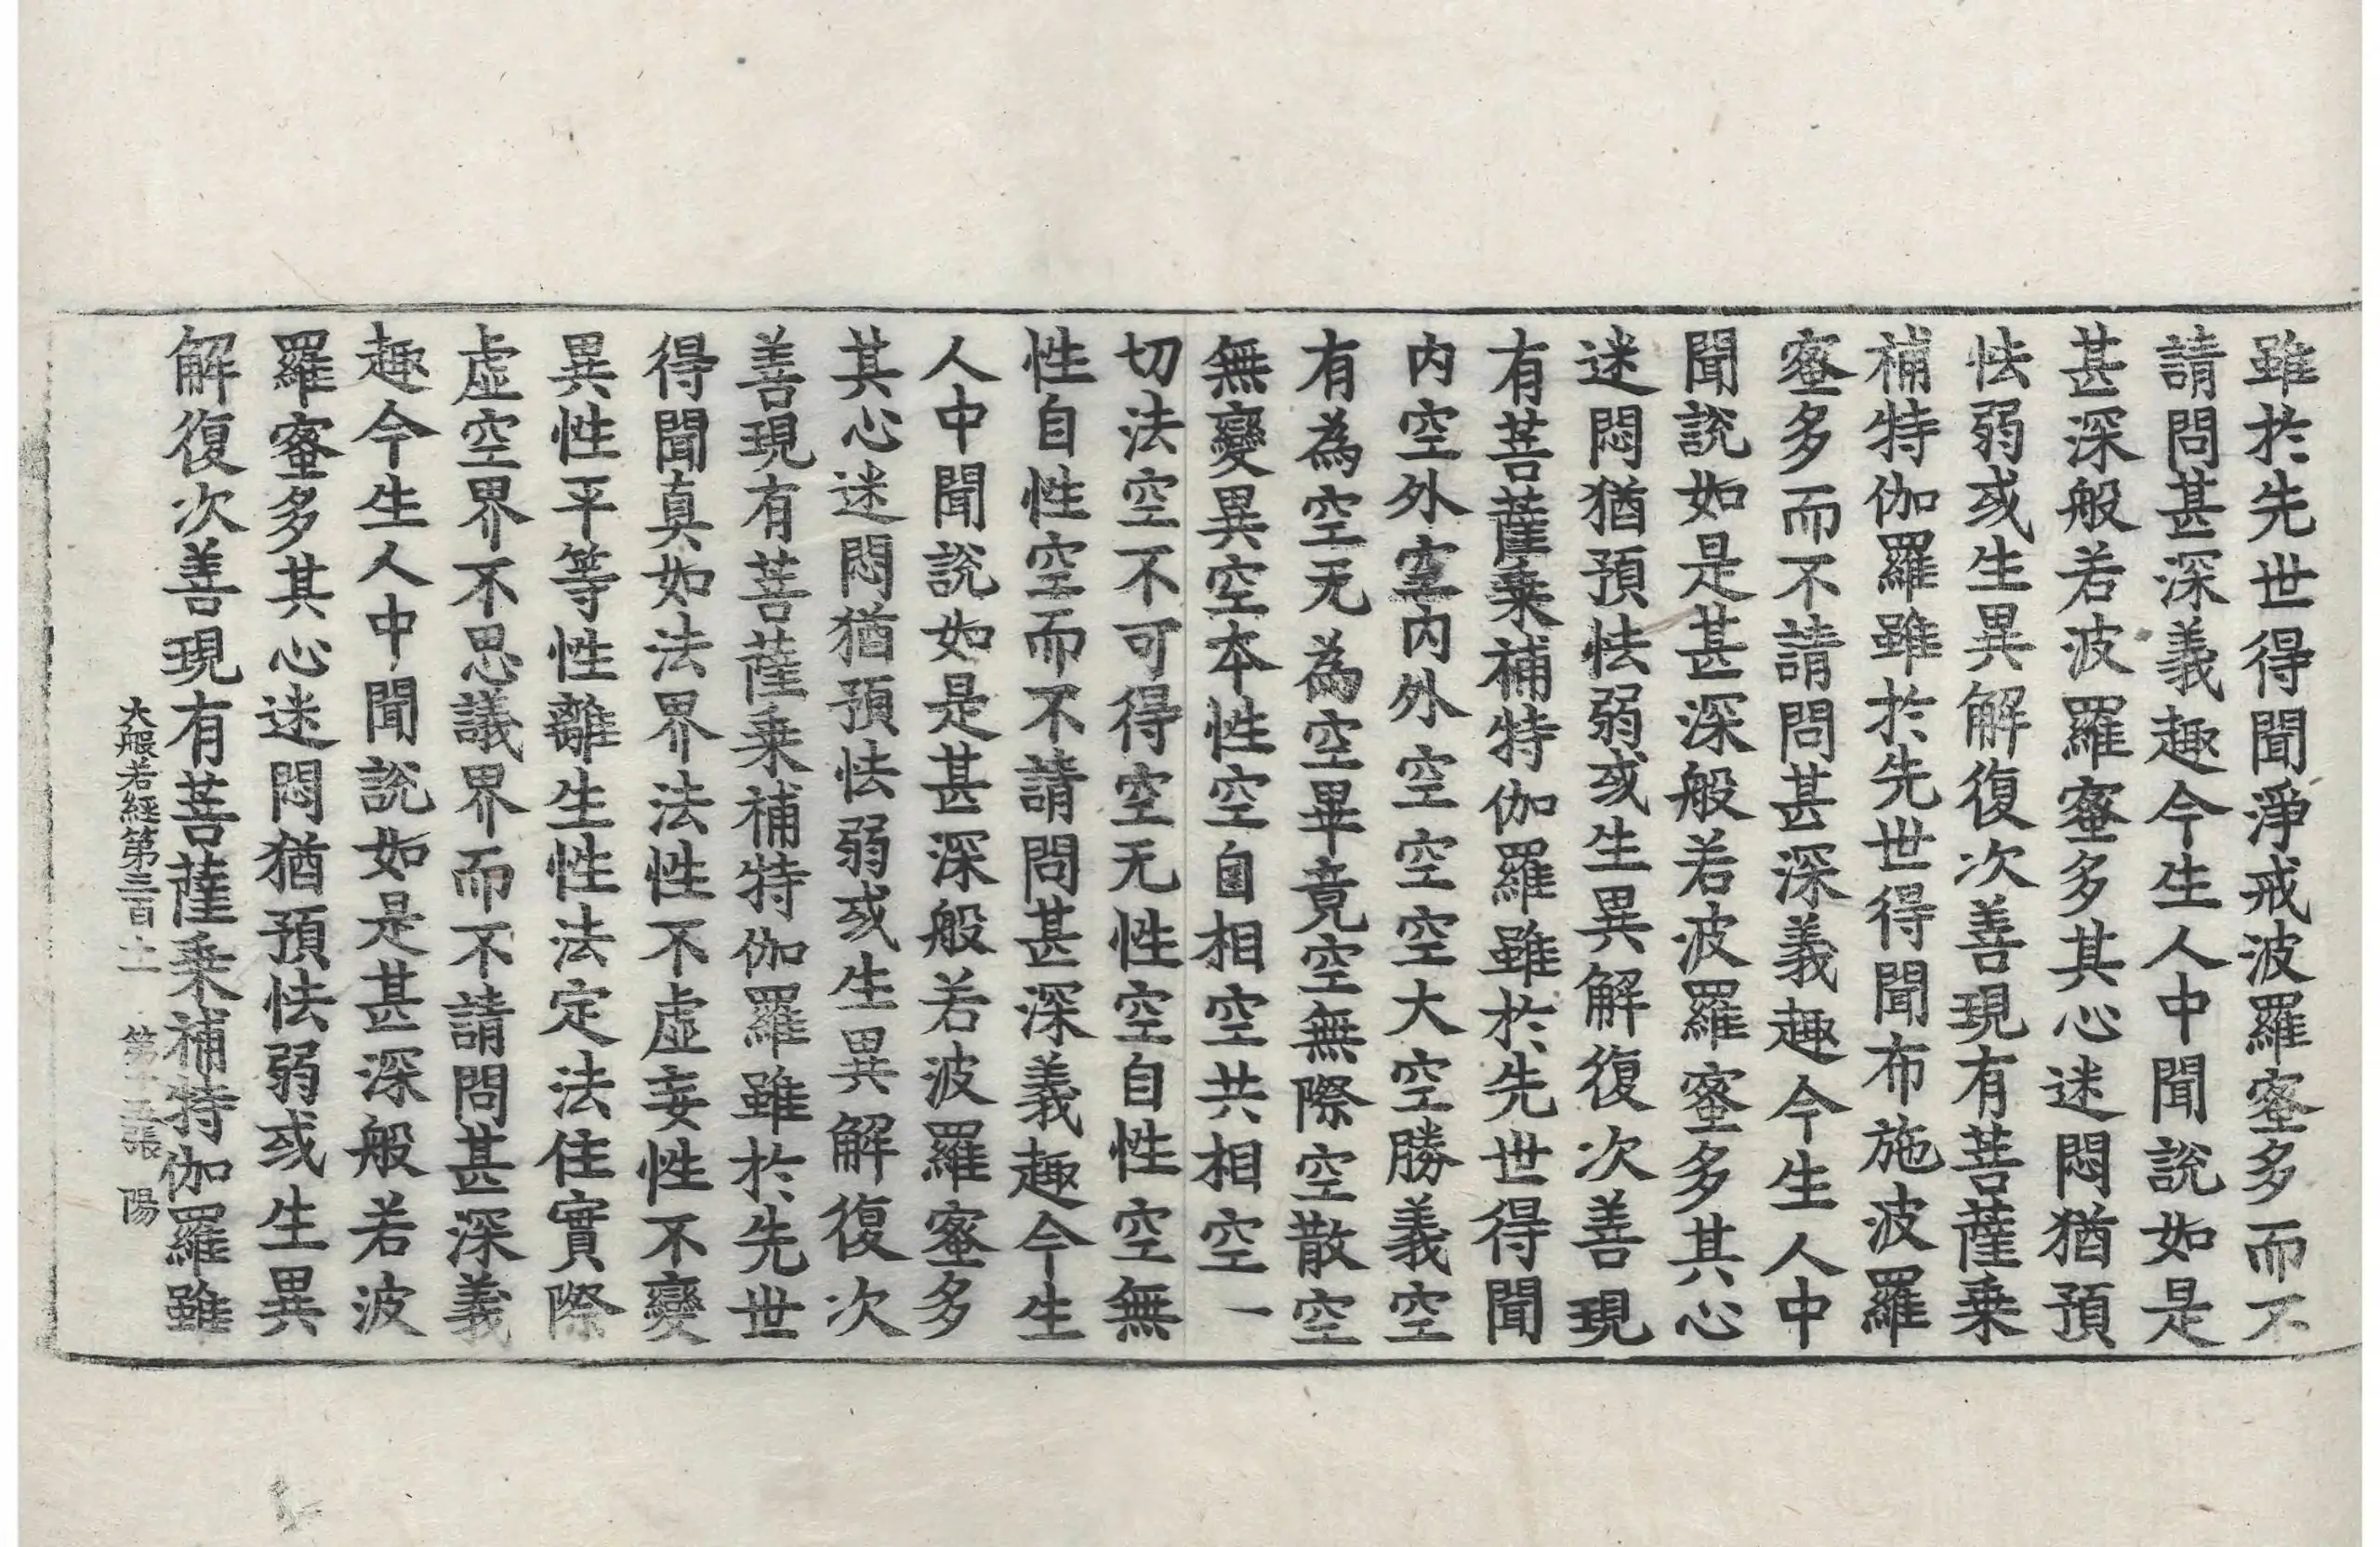 雖於先世得聞淨戒波羅蜜多而不
請問甚深義趣今生人中聞說如是
甚深般若波羅蜜多其心迷悶猶預
怯弱或生異解復次善現有菩薩乗
補特伽羅雖於先世得聞布施波羅
蜜多而不請問甚深義趣今生人中
聞說如是甚深般若波羅蜜多其心
迷悶猶預怯弱或生異解復次善現
有菩薩乗補特伽羅雖於先世得聞
内空外空内外空空空大空勝義空
有為空无為空畢竟空無際空散空
無變異空本性空自相空共相空一
切法空不可得空无性空自性空無
性自性空而不請問甚深義趣今生
人中聞說如是甚深般若波羅蜜多
其心迷悶猶預怯弱或生異解復次
善現有菩薩乗補特伽羅雖於先世
得聞真如法界法性不虛妄性不變
異性平等性離生性法定法住實際
虛空界不思議界而不請問甚深義
趣今生人中聞說如是甚深般若波
羅蜜多其心迷悶猶預怯弱或生異
解復次善現有菩薩乗補特伽羅雖
大般若經第三百十一 第十五張 陽